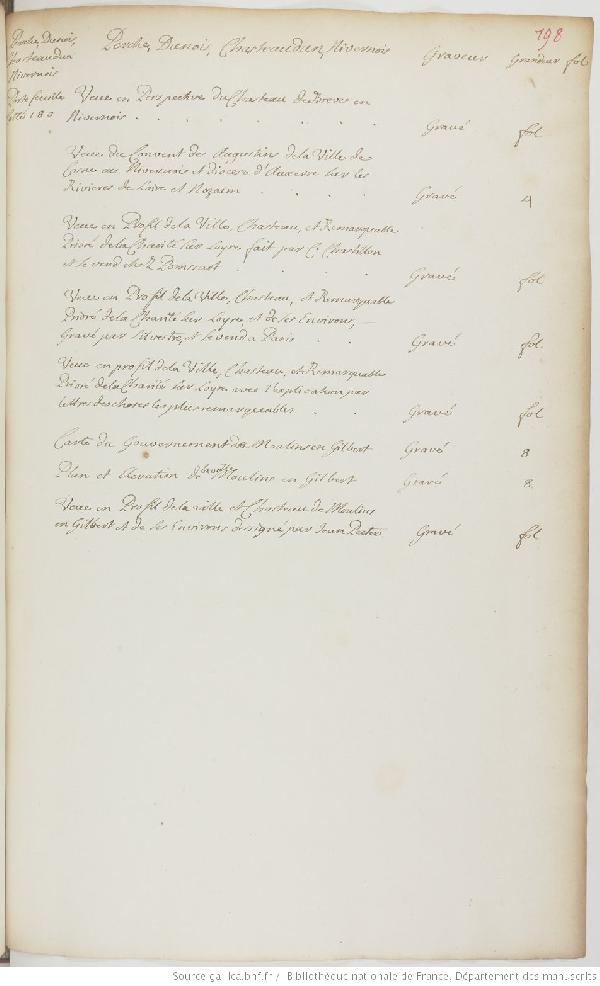 198
Perche, Dunois,
Chasteaudun
Nivernois
Perche, Dunois, Chasteaudun, Nivernois
Graveur Grandeur fol
Porte feuille
Veue en Perspective du Chasteau de Breves en
Nivernois . . . . . Gravé fol
Veue du Convent des Augustins de la Ville de
Cosne en Nivernois et diocese d'Auxerre sur les
Rivieres de Loire et Nozain . . . Gravé 4
Veue en Profil de la Ville, Chasteau, et Remarquable
Prioré de la Charité sur Loyre fait par C. Chastillon
et se vend chez Boissart . . . Gravée fol
Veue en Profil de la Ville, Chasteau, et Remarquable
Prioré de la Charité sur Loyre, et de ses Environs,
Gravé par Silvestre, et se vend a Paris . . Gravé fol
Veue en profil de la Ville, Chasteau, et Remarquable
Prioré de la Charité sur Loyre avec l'explication par
lettres des choses les plus remarqueables . . Gravé fol
Carte du Gouvernement de Moulins en Gilbert Gravé 8
Plan et Elevation de Moulins en Gilbert Gravé 8
Veue en Profil de la ville et Chasteau de Moulins
en Gilbert et de ses Environs designé par Jean Peeters Gravé fol
Source gallica.bnf.fr / Bibliothèque nationale de France. Département des manuscrits